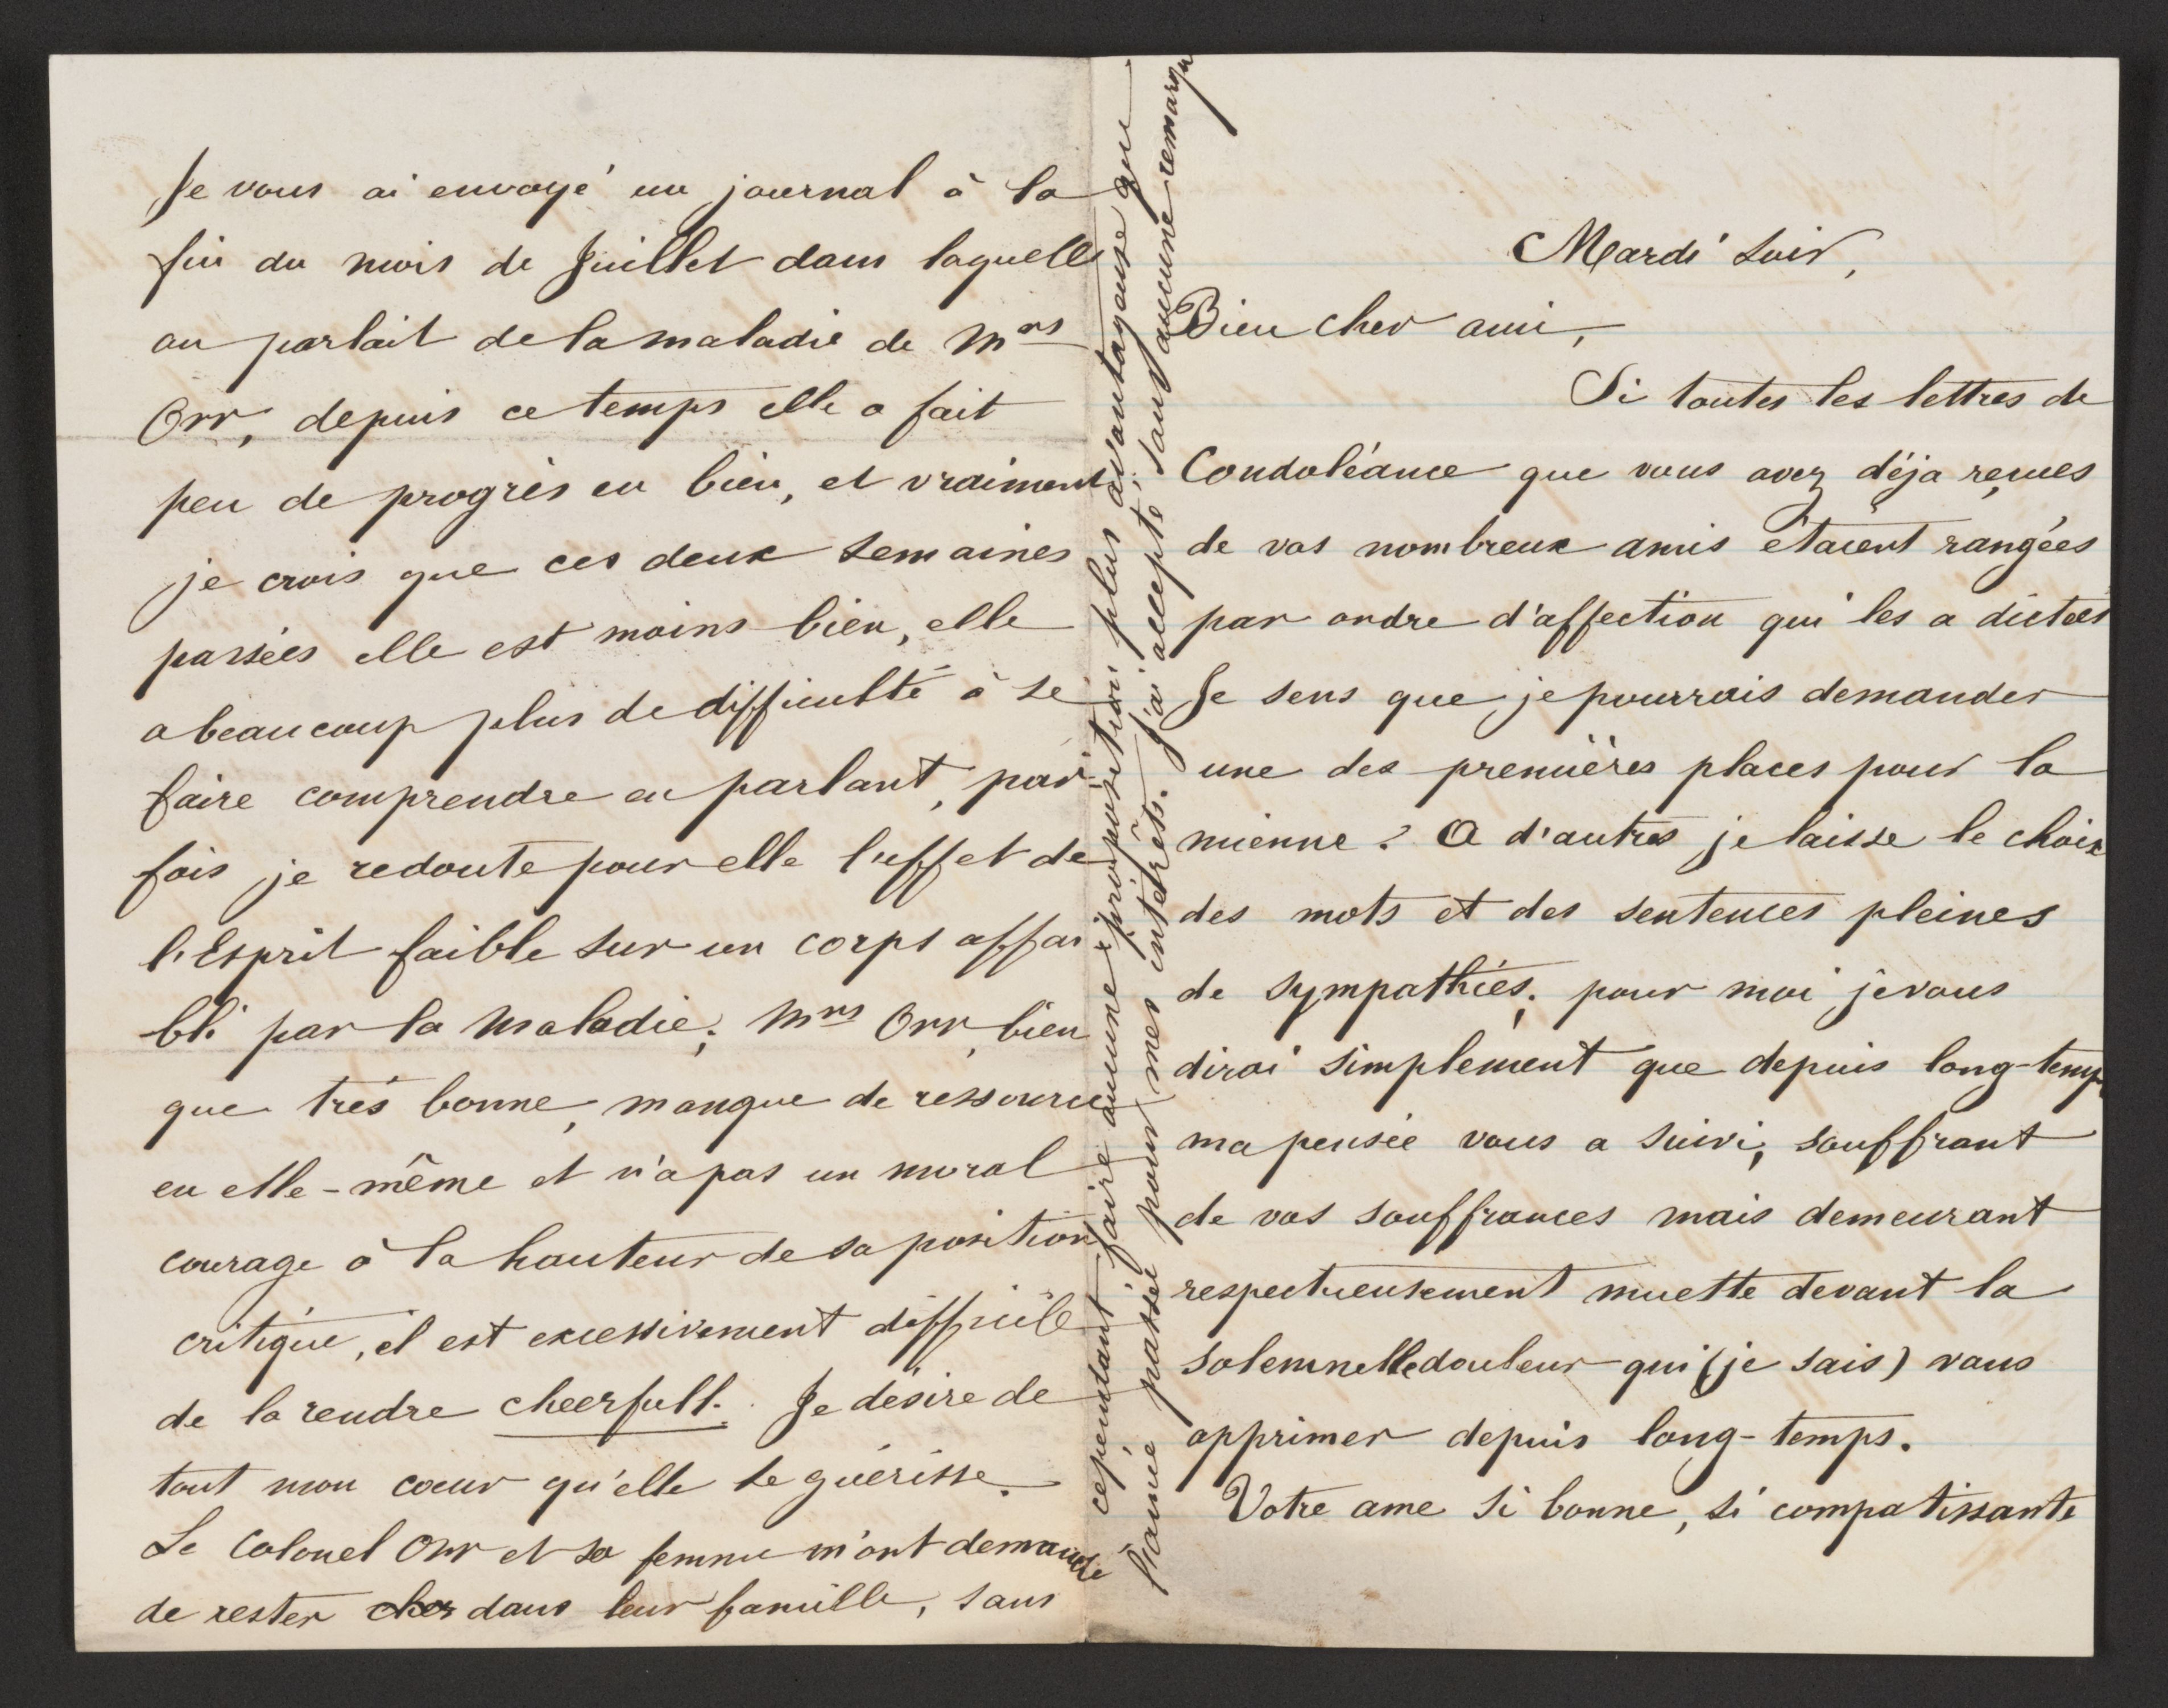 Mardi soir,
Bien cher ami,
Si toutes les lettres de
Condoléance que vous avez déja reçues
de vos nombreux amis étaient rangées
par ordre d'affection qui les a dictées
Je sens que je pourrais demander
une des premières places pour la
mienne. A d'autres je laisse le choix
des mots et des sentences pleines
de sympathies, pour moi je vous
dirai simplement que depuis long-temps
ma pensée vous a suivi, souffrant
de vos souffrances mais demeurant
respectueusement muette devant la
solemnelle douleur qui (je sais) vous
opprimer depuis long-temps.
Votre ame si bonne, si compatissante
Je vous ai envoyé un journal à la
fin du mois de Juillet dans laquelle
on parlait de la maladie de Mrs
Orr, depuis ce temps elle a fait
peu de progrès en bien, et vraiment
je crois que ces deux semaines
passées elle est moins bien, elle
a beaucoup plus de difficulté à se
faire comprendre en parlant, par-
fois je redoute pour elle l'effet de
l'Esprit faible sur un corps affai
bli par la maladie; Mrs Orr, bien
que très bonne, manque de ressource
en elle-même et n'a pas un moral
courage à la hauteur de sa position
critique, il est excessivement difficile
de la rendre cheerfull. Je désire de
tout mon cœur qu'elle se guérisse.
Le Colonel Orr et sa femme m'ont demandé
de rester dans leur famille, sans
cependant faire aucune proposition plus avantageuse que
l'année passée pour mes intérêts. J'ai accepté, sans aucune remarque